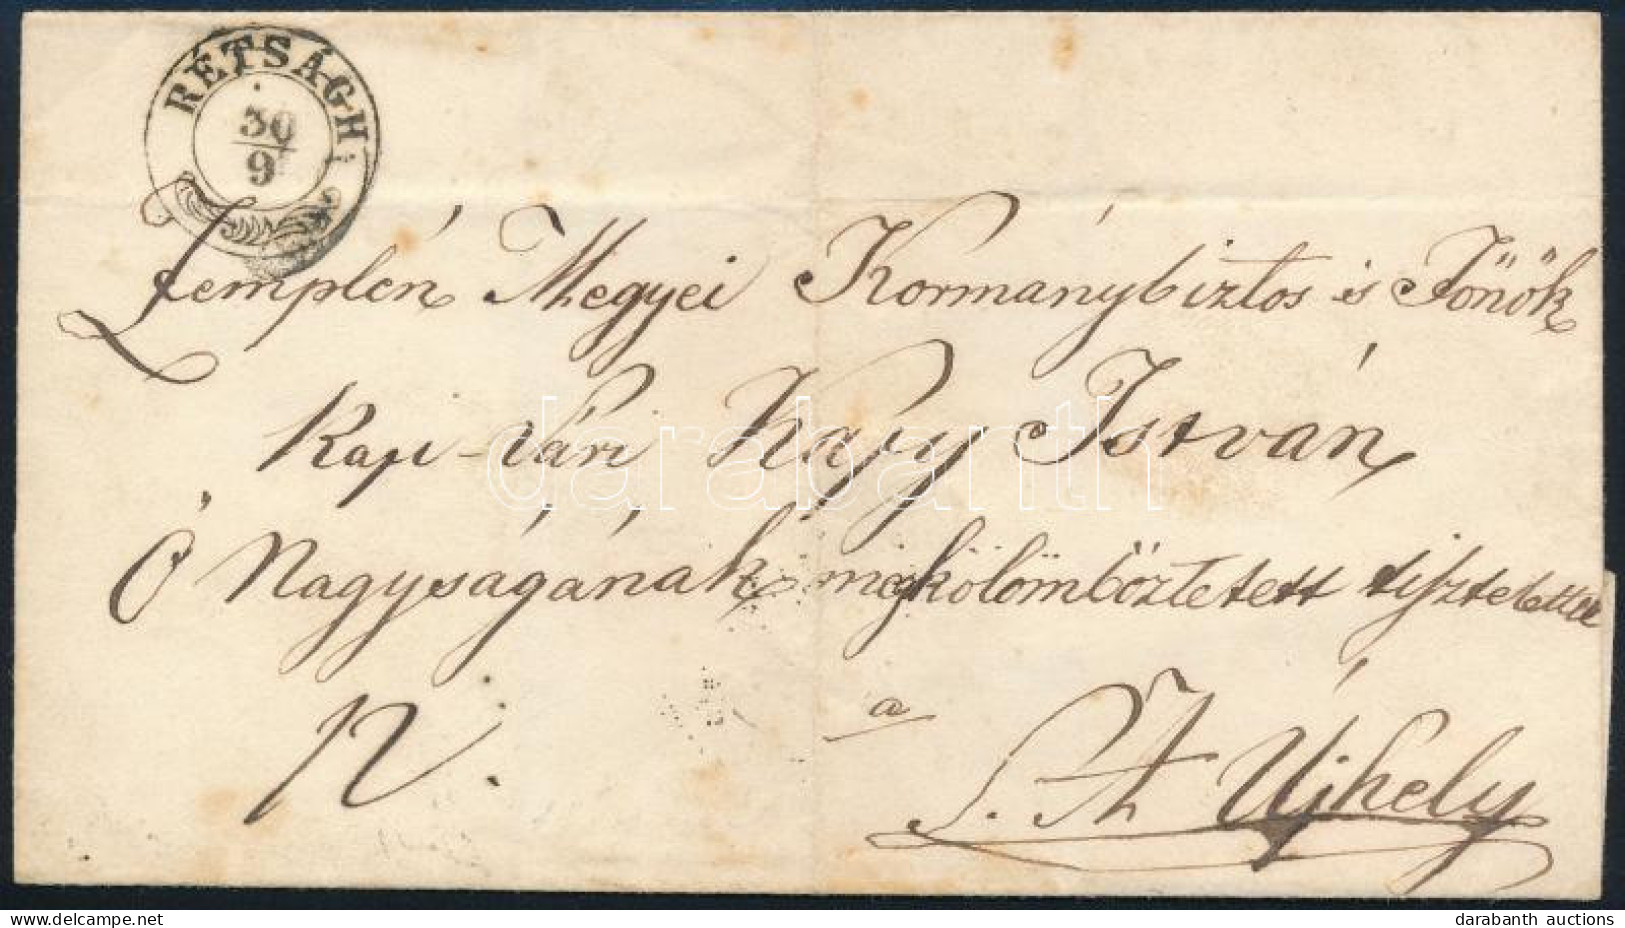 RÉTSÁGH
30
9
Zemplén Megyei Kormánybiztos és Főnök
Kapi-Vári Kapy István
Ő Nagyságának megkölömböztetett tisztelettel
N.
a
S. A. Ujhely
darabanth
delcampe.net
darabanth auctions